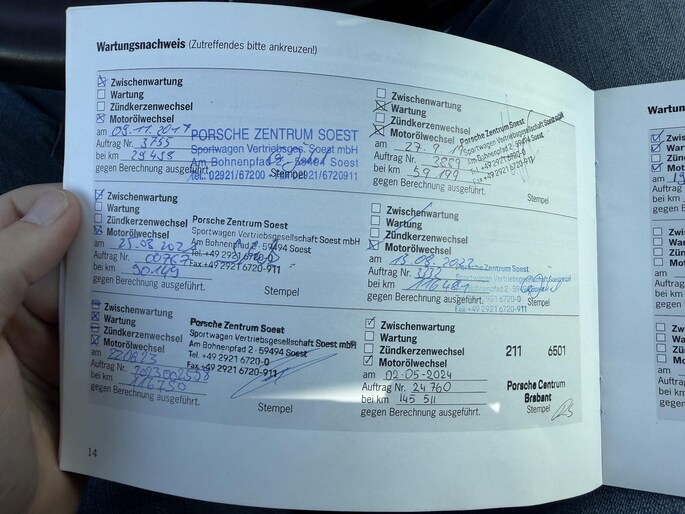 Wartungsnachweis (Zutreffendes bitte ankreuzen!)
Zwischenwartung
Wartung
Zündkerzenwechsel
Motorölwechsel
am 09.11.2017
Auftrag Nr. 3755
bei km 29438
gegen Berechnung ausgeführt.
PORSCHE ZENTRUM SOEST
Sportwagen Vertriebsges. Soest mbH
Am Bohnenpfad 2 · 59494 Soest
Tel.: 02921/67200 02921/6720911
Stempel
Zwischenwartung
Wartung
Zündkerzenwechsel
Motorölwechsel
am 27.9
Auftrag Nr. 3859
bei km 59 199
gegen Berechnung ausgeführt.
Porsche Zentrum Soest
Sportwagen Vertriebsgesellschaft Soest
Am Bohnenpfad 2 - 59494
Tel. +49 2921 6720-0
Fax +49 2921 6720-911
Stempel
Zwischenwartung
Wartung
Zündkerzenwechsel
Motorölwechsel
am 25.08.202
Auftrag Nr. 00767
bei km 90.149
gegen Berechnung ausgeführt.
Porsche Zentrum Soest
Sportwagen Vertriebsgesellschaft Soest mbH
Am Bohnenpfad 2 - 59494 Soest
Tel. +49 2921 6720-0
Fax +49 2921 6720-911
Stempel
Zwischenwartung
Wartung
Zündkerzenwechsel
Motorölwechsel
am 13.08.2022
Auftrag Nr. 3132
bei km 116481
gegen Berechnung ausgeführt.
Porsche Zentrum Soest
Sportwagen Vertriebsgesellschaft Soest
Am Bohnenpfad 2 - 59494 Soest
Tel. +49 2921 6720-0
Fax +49 2921 6720-911
Stempel
Zwischenwartung
Wartung
Zündkerzenwechsel
Motorölwechsel
am 220823
Auftrag Nr.
bei km
gegen Berechnung ausgeführt.
Porsche Zentrum Soest
Sportwagen Vertriebsgesellschaft Soest mbH
Am Bohnenpfad 2 - 59494 Soest
Tel. +49 2921 6720-0
Fax +49 2921 6720-911
Stempel
Zwischenwartung
Wartung
Zündkerzenwechsel
Motorölwechsel
am 02-05-2024
Auftrag Nr. 24760
bei km 145 511
gegen Berechnung ausgeführt.
211 6501
Porsche Centrum
Brabant
Stempel
14